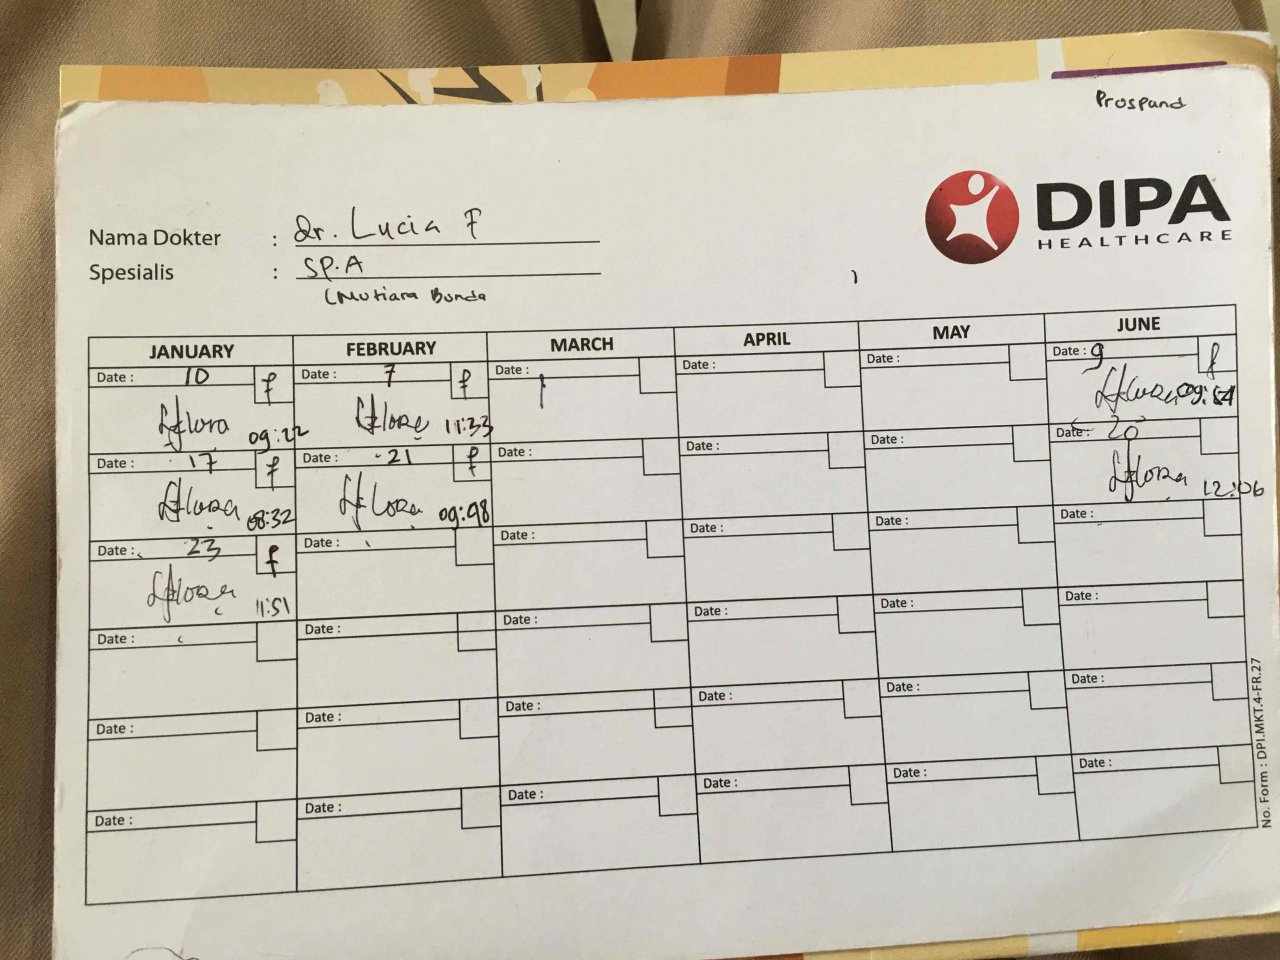 Prospand
DIPA
HEALTHCARE
Nama Dokter : dr. Lucia F
Spesialis : SP.A
(Mutiara Bunda
JANUARY FEBRUARY MARCH APRIL MAY JUNE
Date : 10 f Date : 7 f Date : Date : Date : Date : 9 f
09:22 11:33
Date : 17 f Date : 21 f Date : Date : Date : Date : 20
08:32 09:98 12:06
Date : 23 f Date : Date : Date : Date : Date :
11:51
Date : Date : Date : Date : Date : Date :
Date : Date : Date : Date : Date : Date :
Date : Date : Date : Date : Date : Date :
No. Form : DPI.MKT.4-FR.27